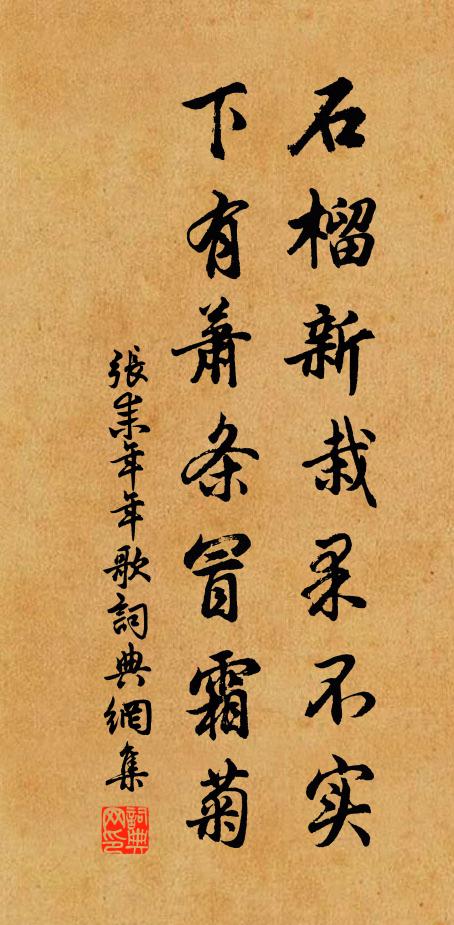 石榴新栽果不实
下有萧条冒霜菊
張耒年年歌詞典網集
詞典网印